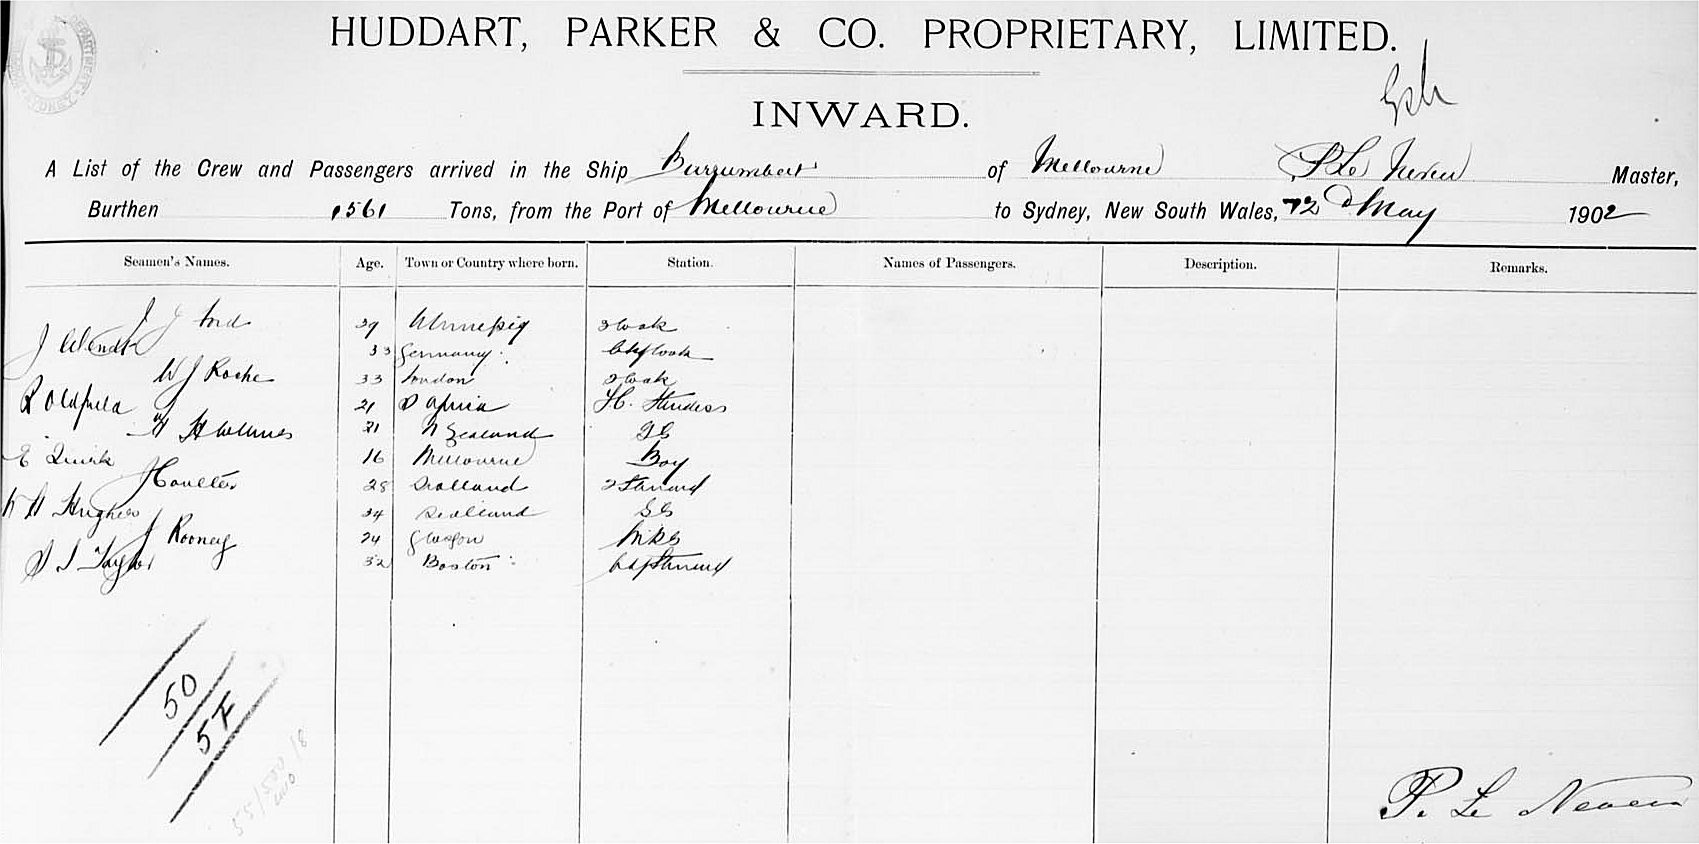 HUDDART, PARKER & CO. PROPRIETARY, LIMITED.
INWARD.
A List of the Crew and Passengers arrived in the Ship Burrumbeet of Melbourne P Le Neveu Master,
Burthen 1561 Tons, from the Port of Melbourne to Sydney, New South Wales, 2d May 1902
Seamen's Names. Age. Town or Country where born. Station. Names of Passengers. Description. Remarks.
J 29 Winnepig 2 Cook
J Wendt 33 Germany Chf Cook
W J Roche 33 London 2 Cook
R Oldfield 21 S Africa
H 21 N Zealand
E Quirk 16 Melbourne Boy
J Coulter 28 Scotland 2 Steward
W H Hughes 34 Scotland
J Rooney 24 Glasgow
Taylor 32 Boston
50
5F
P. Le Neveu